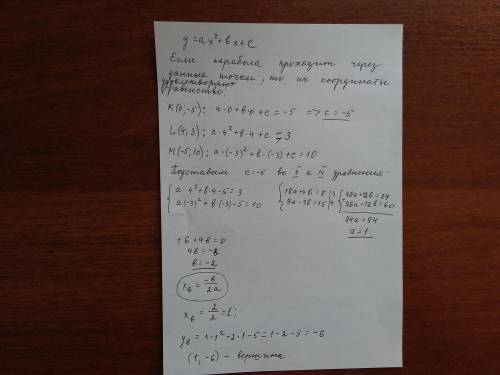 y = ax² + bx + c
Если парабола проходит через
данные точки, то их координаты
удовлетворяют
уравнению:
K(0; -5): a·0 + b·0 + c = -5 => c = -5
L(4; 3): a·4² + b·4 + c = 3
M(-5; 10): a·(-3)² + b·(-3) + c = 10
Подставим c = -5 во II и III уравнения:
{ a·4² + b·4 - 5 = 3
a(-3)² + b·(-3) - 5 = 10
{ 16a + 4b = 8 |·3
9a - 3b = 15 |·4
{ 48a + 12b = 24
36a - 12b = 60
84a = 84
a = 1
16 + 4b = 8
4b = -8
b = -2
x_в = -b/2a
x_в = 2/2 = 1;
y_в = 1·1² - 2·1 - 5 = 1 - 2 - 5 = -6
(1; -6) - вершина